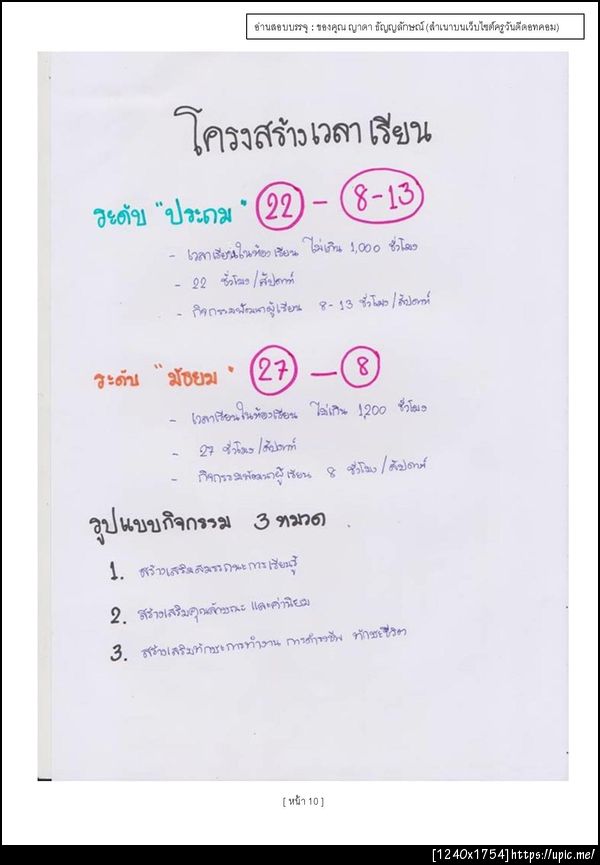 อ่านสอบบรรจุ : ของคุณ ญาดา ธัญญลักษณ์ (สำเนาบนเว็บไซต์ครูวันดีดอทคอม)
โครงสร้างเวลาเรียน
ระดับ "ประถม" 22 - 8-13
- เวลาเรียนในห้องเรียน ไม่เกิน 1,000 ชั่วโมง
- 22 ชั่วโมง/สัปดาห์
- กิจกรรมพัฒนาผู้เรียน 8-13 ชั่วโมง/สัปดาห์
ระดับ "มัธยม" 27 - 8
- เวลาเรียนในห้องเรียน ไม่เกิน 1,200 ชั่วโมง
- 27 ชั่วโมง/สัปดาห์
- กิจกรรมพัฒนาผู้เรียน 8 ชั่วโมง/สัปดาห์
รูปแบบกิจกรรม 3 หมวด
1. สร้างเสริมสมรรถนะการเรียนรู้
2. สร้างเสริมคุณลักษณะ และค่านิยม
3. สร้างเสริมทักษะการทำงาน การดำรงชีพ ทักษะชีวิต
[ หน้า 10 ]
[1240x1754]https://upic.me/